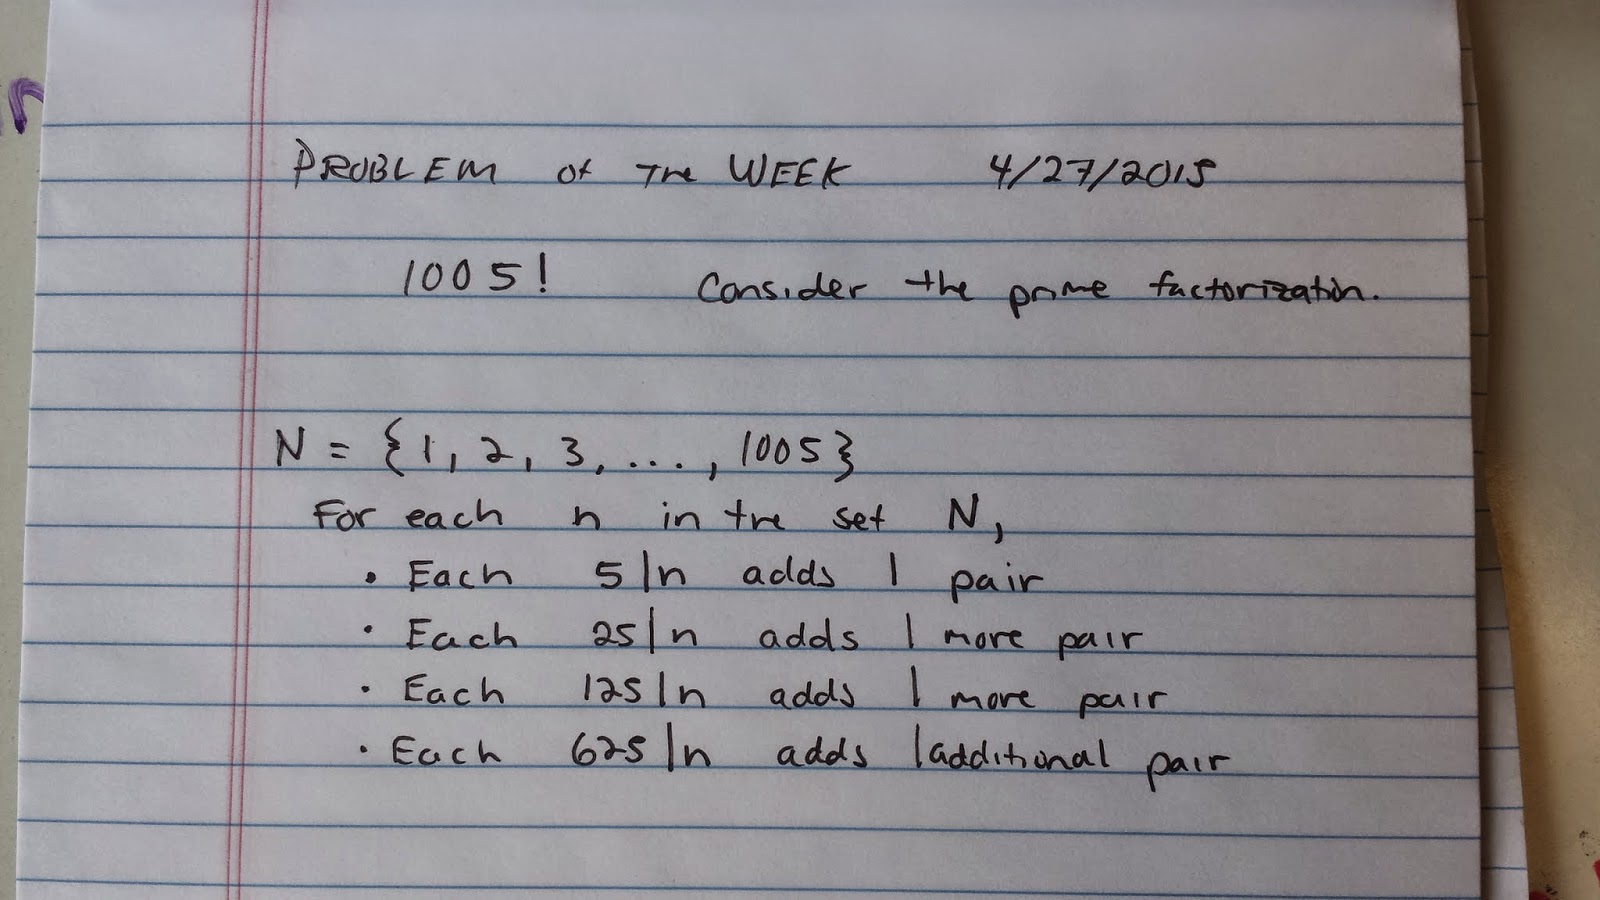 PROBLEM of The WEEK 4/27/2015
1005! Consider the prime factorization.
N = {1, 2, 3, ..., 1005}
For each n in the set N,
• Each 5|n adds 1 pair
• Each 25|n adds 1 more pair
• Each 125|n adds 1 more pair
• Each 625|n adds 1 additional pair